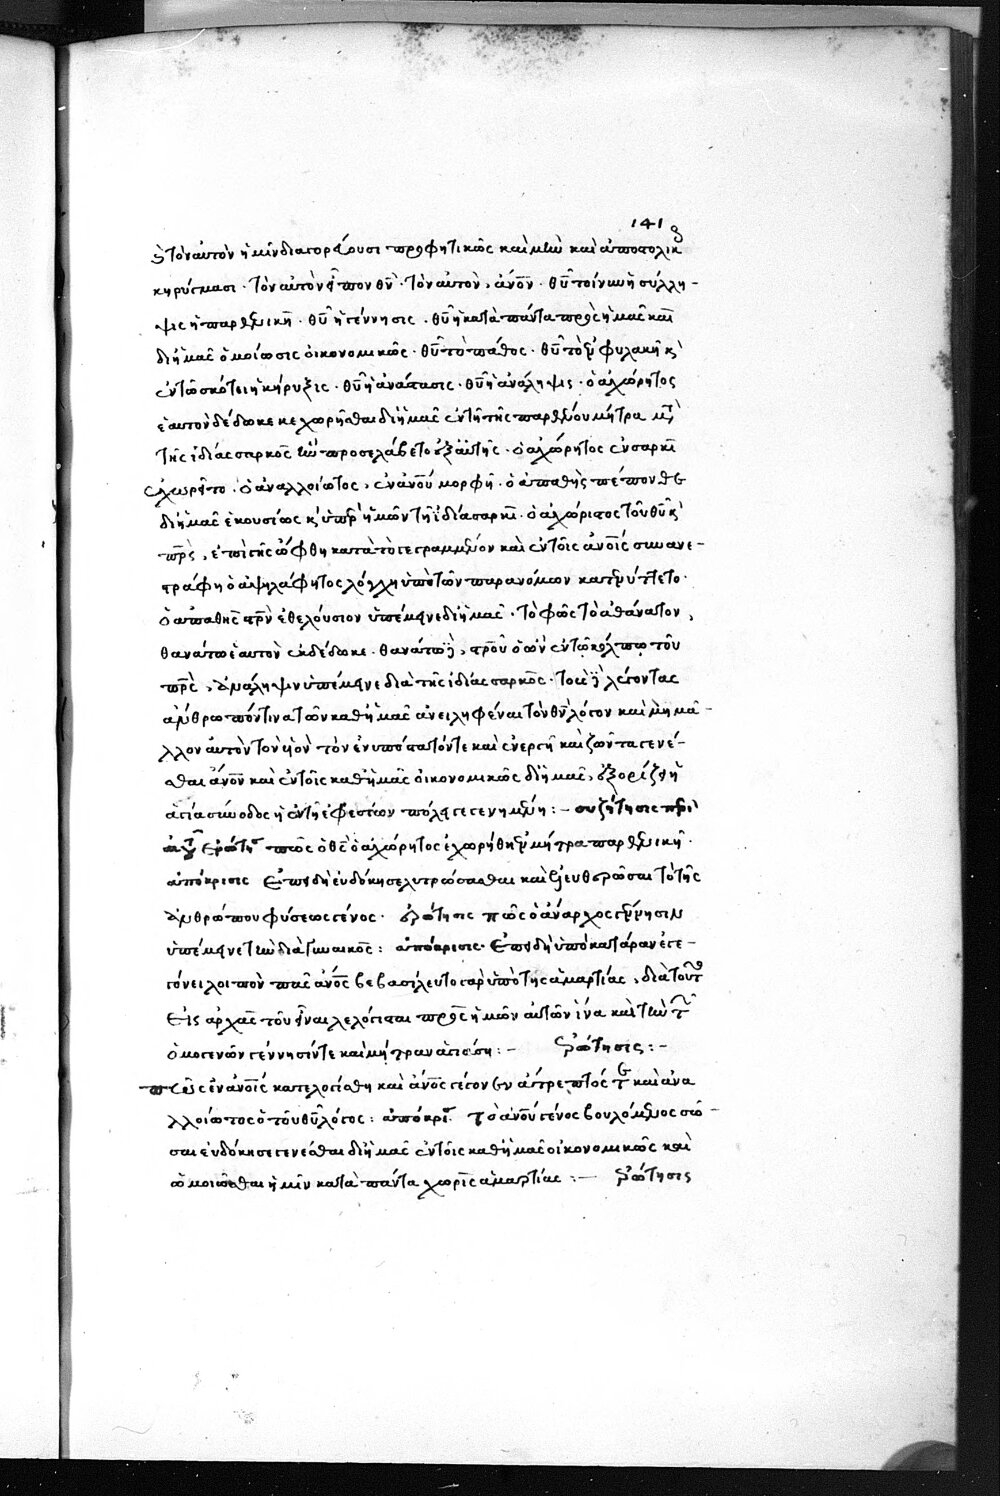 141
τὸν αὐτὸν ἡμῖν διαγορεύουσι προφητικοῖς καὶ καὶ ἀποστολικ
κηρύγμασι · τὸν αὐτὸν εἶπον θν · τὸν αὐτὸν, ανον · θυ τοίνυν ἡ σύλλη-
ψις ἡ παρθενικὴ · θυ ἡ γέννησις · θυ ἡ κατὰ πάντα πρὸς ἡμᾶς καὶ
δι ἡμᾶς ὁμοίωσις οἰκονομικῶς · θυ τὸ πάθος · θυ τὸ ἐν φυλακῆ κ
ἐν τῶ σκότει ἡ κήρυξις · θυ ἡ ἀνάστασις · θυ ἡ ἀνάληψις · ὁ ἀχώρητος
ἑαυτὸν δέδωκε κεχωρῆσθαι δι ἡμᾶς ἐν τῆ τῆς παρθένου μήτρα μετὰ
τῆς ἰδίας σαρκὸς ἣν προσελάβετο ἐξ αὐτῆς · ὁ ἀχώρητος ἐν σαρκὶ
ἐχωρεῖτο · ὁ ἀναλλοίωτος, ἐν ανου μορφῆ · ὁ ἀπαθὴς πέπονθε
δι ἡμᾶς ἑκουσίως κ ὑπὲρ ἡμῶν τῆ ἰδία σαρκὶ · ὁ ἀχώριστος τοῦ θυ κ
πρς, ἐπὶ γῆς ὤφθη κατὰ τὸ γεγραμμένον καὶ ἐν τοῖς ανοις συνανε-
τράφη ὁ ἀψηλάφητος λόγχη ὑπὸ τῶν παρανόμων κατεκεντεῖτο ·
ὁ ἀπαθὴς ἐθελούσιον ὑπέμεινε δι ἡμᾶς · τὸ φῶς τὸ ἀθάνατον,
θανάτω ἑαυτὸν ἐκδέδωκε · θανάτω, σροῦ ὁ ὢν ἐν τῶ κόλπω τοῦ
πρς, ἀνάληψιν ὑπέμεινε διὰ τῆς ἰδίας σαρκὸς · τοὺς λέγοντας
ἄνθρωπόν τινα τῶν καθ ἡμᾶς ἀνειληφέναι τὸν θν λόγον καὶ μὴ μᾶ-
λλον αὐτὸν τὸν υἱὸν τὸν ἐνυπόστατόν τε καὶ ἐνεργῆ καὶ ζῶντα γενέ-
σθαι ανον καὶ ἐν τοῖς καθ ἡμᾶς οἰκονομικῶς δι ἡμᾶς, ἐξορίζει ἡ
ἁγία σύνοδος ἡ ἐν τῆ ἐφεσίων πόλει γεγενημένη :- συζήτησις περὶ
Ερώτη πῶς ὁ θς ὁ ἀχώρητος ἐχωρήθη ἐν μήτρα παρθενικῆ ·
ἀπόκρισις Ἐπειδὴ εὐδόκησε λυτρώσασθαι καὶ ἐλευθερῶσαι τὸ τῆς
ἀνθρώπου φύσεως γένος · ἐρώτησις πῶς ὁ ἄναρχος γέννησιν
ὑπέμεινε τὴν διὰ γυναικὸς : ἀπόκρισις · Ἐπειδὴ ὑπὸ κατάραν ἐγε-
γόνει λοιπὸν πᾶς ανος βεβασίλευτο γὰρ ὑπὸ τῆς ἁμαρτίας, διὰ τοῦτο
Εἰς ἀρχὰς τοῦ εἶναι λελόγισται πρὸς ἡμῶν αὐτῶν ἵνα καὶ τὴν τ
ὁμογενῶν γέννησίν τε καὶ μήτραν ἁγιάση :- Ἐρώτησις :-
πῶς ἐν ανοις κατελογίσθη καὶ ανος γέγονεν ἄτρεπτός τε καὶ ἀνα
λλοίωτος ὁ τοῦ θυ λόγος : ἀπόκρι τὸ ανου γένος βουλόμενος σῶ-
σαι εὐδόκησε γενέσθαι δι ἡμᾶς ἐν τοῖς καθ ἡμᾶς οἰκονομικῶς καὶ
ὡμοιῶσθαι ἡμῖν κατὰ πάντα χωρὶς ἁμαρτίας :- Ἐρώτησις